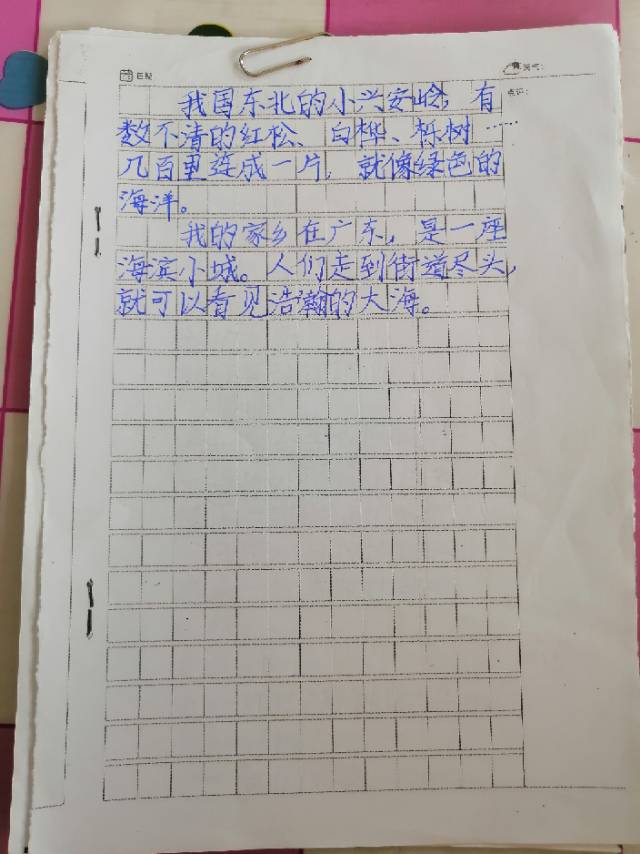 日期
天气:
点评:
我国东北的小兴安岭,有
数不清的红松、白桦、栎树……
几百里连成一片,就像绿色的
海洋。
我的家乡在广东,是一座
海滨小城。人们走到街道尽头,
就可以看见浩瀚的大海。